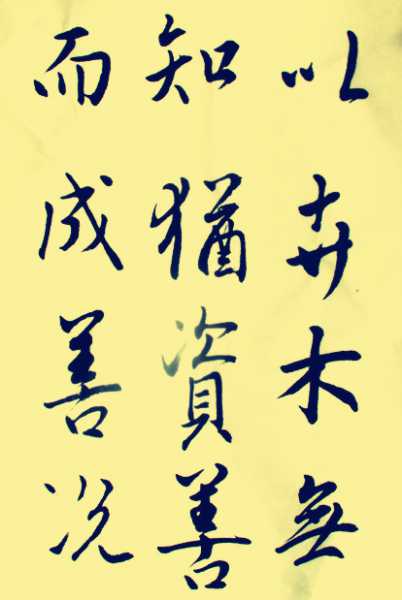 以卉木無
知猶資善
而成善况